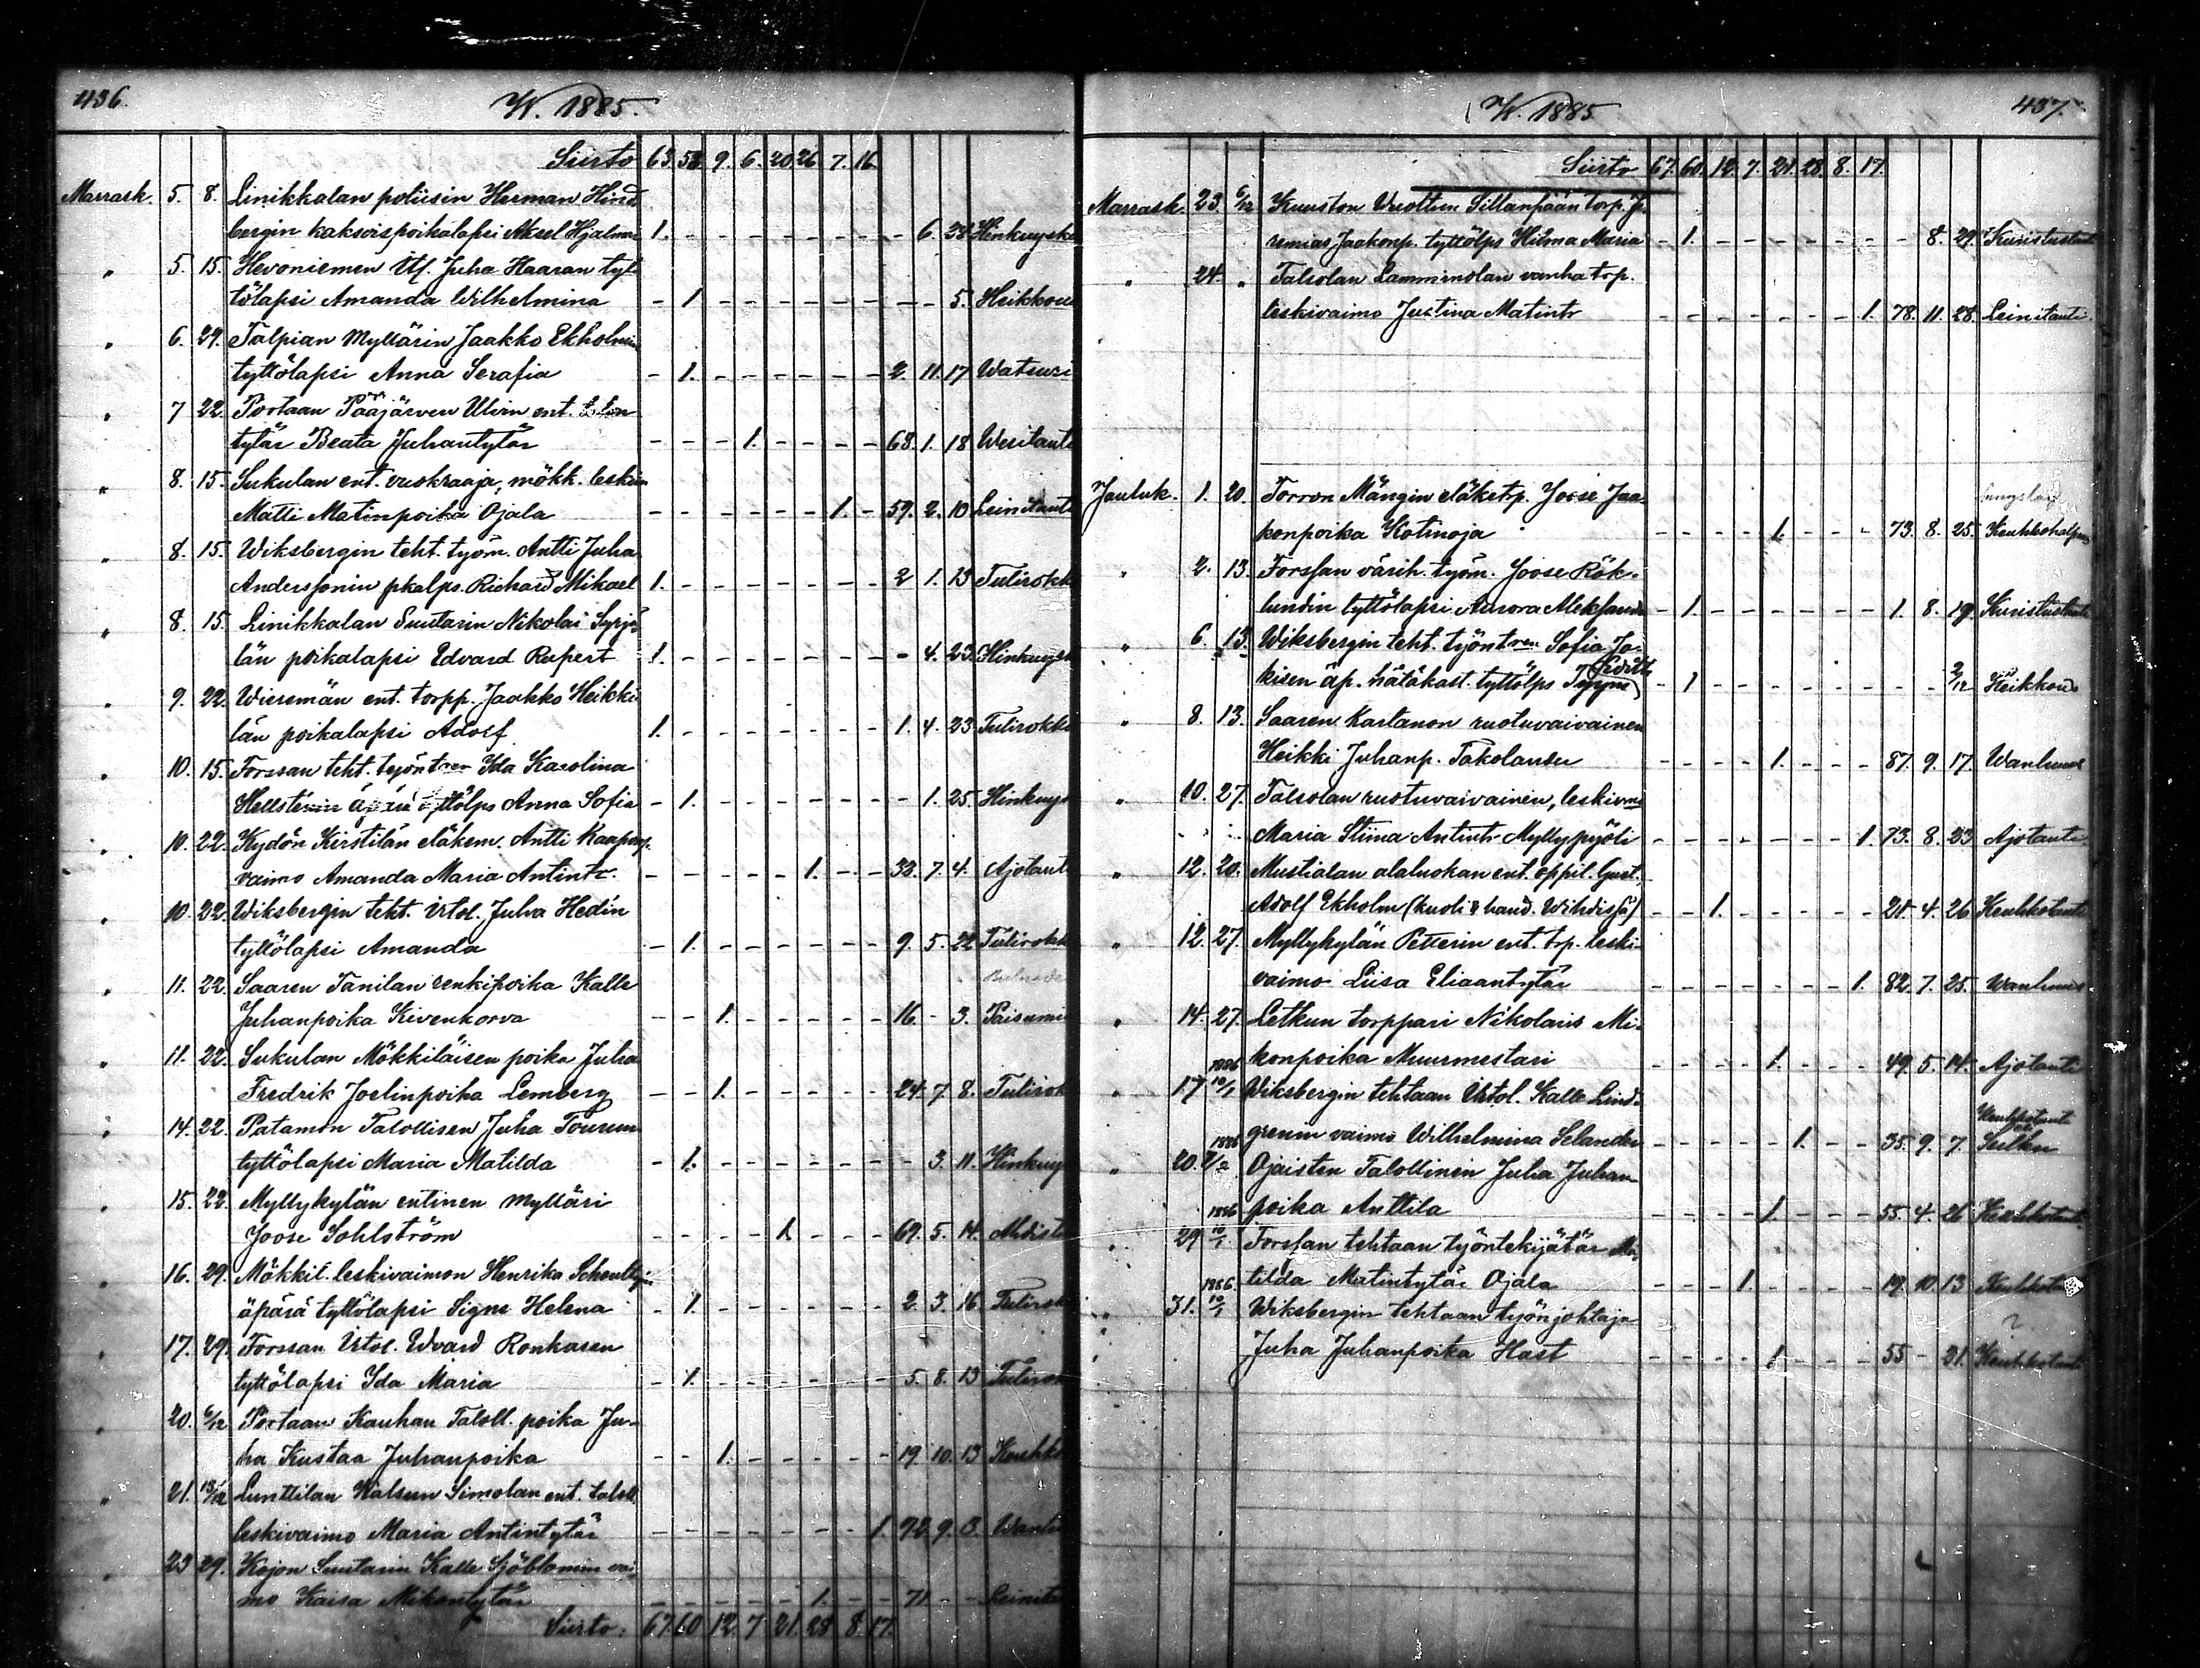 436.
V. 1885.
Siirto 63. 53. 9. 6. 20. 26. 7. 16.
Marrask. 5. 8. Linikkalan poliisin Herman Hind
bergin kaksoispoikalapsi Aksel Hjalmar 1. - - - - - - - - 6. 28. Hinkuyskä
" 5. 15. Hevoniemen Itl. Juha Haaran tyt
tölapsi Amanda Wilhelmina - 1. - - - - - - - - 5. Heikkous
" 6. 29. Talpian Myllärin Jaakko Ekholmin
tyttölapsi Anna Serafia - 1. - - - - - - 2. 11. 17 Watsuri
" 7 22. Portaan Pääjärven Ulvin ent.
tytär Beata Juhantytär - - - 1. - - - - 68. 1. 18 Wesitauti
" 8. 15. Sukulan ent. vuokraaja, mökk. leskim
Matti Matinpoika Ojala - - - - - - 1. - 59. 2. 10 Leinitauti
" 8. 15. Wiksbergin teht. työm. Antti Juha
Anderssonin pkalps. Richard Mikael 1. - - - - - - - 2 1. 13 Tulirokko
" 8. 15. Linikkalan Suutarin Nikolai Syrjä
län poikalapsi Edvard Rupert 1. - - - - - - - - 4. 23. Hinkuysk
" 9. 22. Wieremän ent. torpp. Jaakko Heikki
län poikalapsi Adolf 1. - - - - - - - 1. 4. 23. Tulirokko
" 10. 15. Forssan teht. työntren Ida Karolina
Hellsténin äpärä tyttölps Anna Sofia - 1. - - - - - - - 1. 25. Hinkuys
" 10. 22. Kydön Kirstilän eläkem. Antti Kaaponp.
vaimo Amanda Maria Antintr. - - - - - 1. - - 33. 7. 4. Ajotaut
" 10. 22. Wiksbergin teht. Irtol. Juha Hedin
tyttölapsi Amanda - 1. - - - - - - 9. 5. 22 Tulirokk
" 11. 22. Saaren Tanilan renkipoika Kalle
Juhanpoika Kivenkorva - - 1. - - - - - 16. - 3. Paisumi
" 11. 22. Sukulan Mökkiläisen poika Juha
Fredrik Joelinpoika Lemberg - - 1. - - - - - 24. 7. 8. Tulirok
" 14. 22. Patamon Talollisen Juha Tourun
tyttölapsi Maria Matilda - 1. - - - - - - - 3. 11. Hinkuy
" 15. 22. Myllykylän entinen mylläri
Joose Sohlström - - - - 1. - - - 69. 5. 14. Ahdist
" 16. 29. Mökkil. leskivaimon Henrika Schoultzin
äpärä tyttölapsi Signe Helena - 1. - - - - - - 2. 3. 16 Tulirok
" 17. 29. Forssan Irtol. Edvard Ronkasen
tyttölapsi Ida Maria - 1. - - - - - - 5. 8. 13 Tulirok
" 20. 6/12 Portaan Kauhan Taloll. poika Ju-
ha Kustaa Juhanpoika - - 1. - - - - - 19. 10. 13 Keuhko
" 21. 13/12 Lunttilan Kalsun Simolan ent. taloll.
leskivaimo Maria Antintytär - - - - - - - 1. 72. 9. 3. Wanhu
" 23 29. Kojon Suutarin Kalle Sjöblomin vai
mo Kaisa Mikontytär - - - - - 1. - - 71. - - Leinita
Siirto: 67. 60 12. 7 21. 28 8. 17.
V. 1885 437.
Siirto 67. 60. 12. 7. 21. 28. 8. 17.
Marrask. 23. 6/12 Kuuston Uuoltun Sillanpään torp. Je-
remias Jaakonp. tyttölps Hilma Maria - 1. - - - - - - - 8. 29. Kuristustauti
" 24. " Talsolan Lamminolan vanha torp.
leskivaimo Justina Matintr - - - - - - - 1. 78. 11. 28. Leinitauti.
Jouluk. 1. 20. Torron Mängin eläketrp. Joose Jaa-
konpoika Kotinoja - - - - 1. - - - 73. 8. 25. Keuhkohalpaus
" 2. 13. Forssan värih. työm. Joose Rök-
lundin tyttölapsi Aurora Aleksandra - 1. - - - - - - 1. 8. 19. Kuristustauti
" 6. 13. Wiksbergin teht. työntren Sofia Jo-
kisen äp. hätäkast. tyttölps Jenny Edith - 1 - - - - - - - 2/12 Heikkous
" 8. 13. Saaren Kartanon ruotuvaivainen
Heikki Juhanp. Takolander - - - - 1. - - - 87. 9. 17. Wanhuus
" 10. 27. Talsolan ruotuvaivainen, leskivmo
Maria Stiina Antintr Myllypyöli - - - - - - - 1. 73. 8. 23 Ajotauti.
" 12. 20. Mustialan alaluokan ent. oppil. Gust.
Adolf Ekholm (kuoli & haud. Wihdissä) - - 1. - - - - - 21. 4. 26 Keuhkotauti
" 12. 27. Myllykylän Petterin ent. trp. leski-
vaimo Liisa Eliaantytär - - - - - - - 1. 82. 7. 25. Wanhuus
" 14. 27. Letkun torppari Nikolaus Mi-
konpoika Muurmestari - - - - 1. - - - 49. 5. 14. Ajotauti
" 17 1886 10/1 Wiksbergin tehtaan Irtol. Kalle Lind-
grenin vaimo Wilhelmina Selander - - - - - 1. - - 35. 9. 7. Keuhkotauti
" 20. 1886 Ojaisten Talollinen Juha Juhan
poika Anttila - - - - 1. - - - 55. 4. 26 Keuhkotaut.
" 29 1886 10/1 Forssan tehtaan työntekijätär Ma-
tilda Matintytär Ojala - - - 1. - - - - 19. 10. 13 Keuhkot
" 31. 1886. 10/1 Wiksbergin tehtaan työnjohtaja
Juha Juhanpoika Hast - - - - 1 - - - 55 - 31. Keuhkotaut